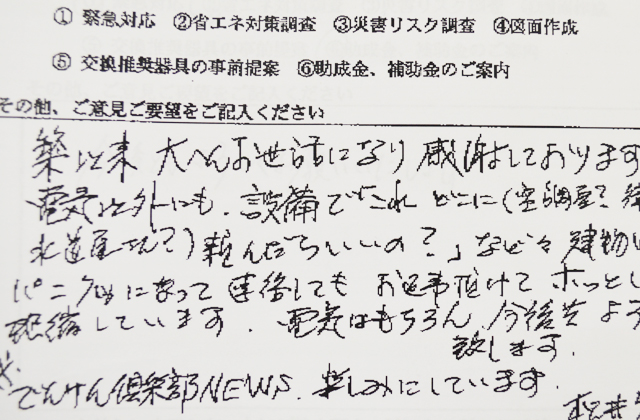 ① 緊急対応 ②省エネ対策調査 ③災害リスク調査 ④図面作成
⑤ 交換推奨器具の事前提案 ⑥助成金、補助金のご案内
その他、ご意見ご要望をご記入ください
築以来 大へんお世話になり 感謝しております
電気以外にも、設備で「これ どこに(空調屋?
水道屋さん?)頼んだらいいの?」など々 建物
パニクッになって 連絡しても お返事頂けて ホッとし
しています。電気はもちろん 今後共 よろ
致します。
でんけん倶楽部NEWS、楽しみにしています。